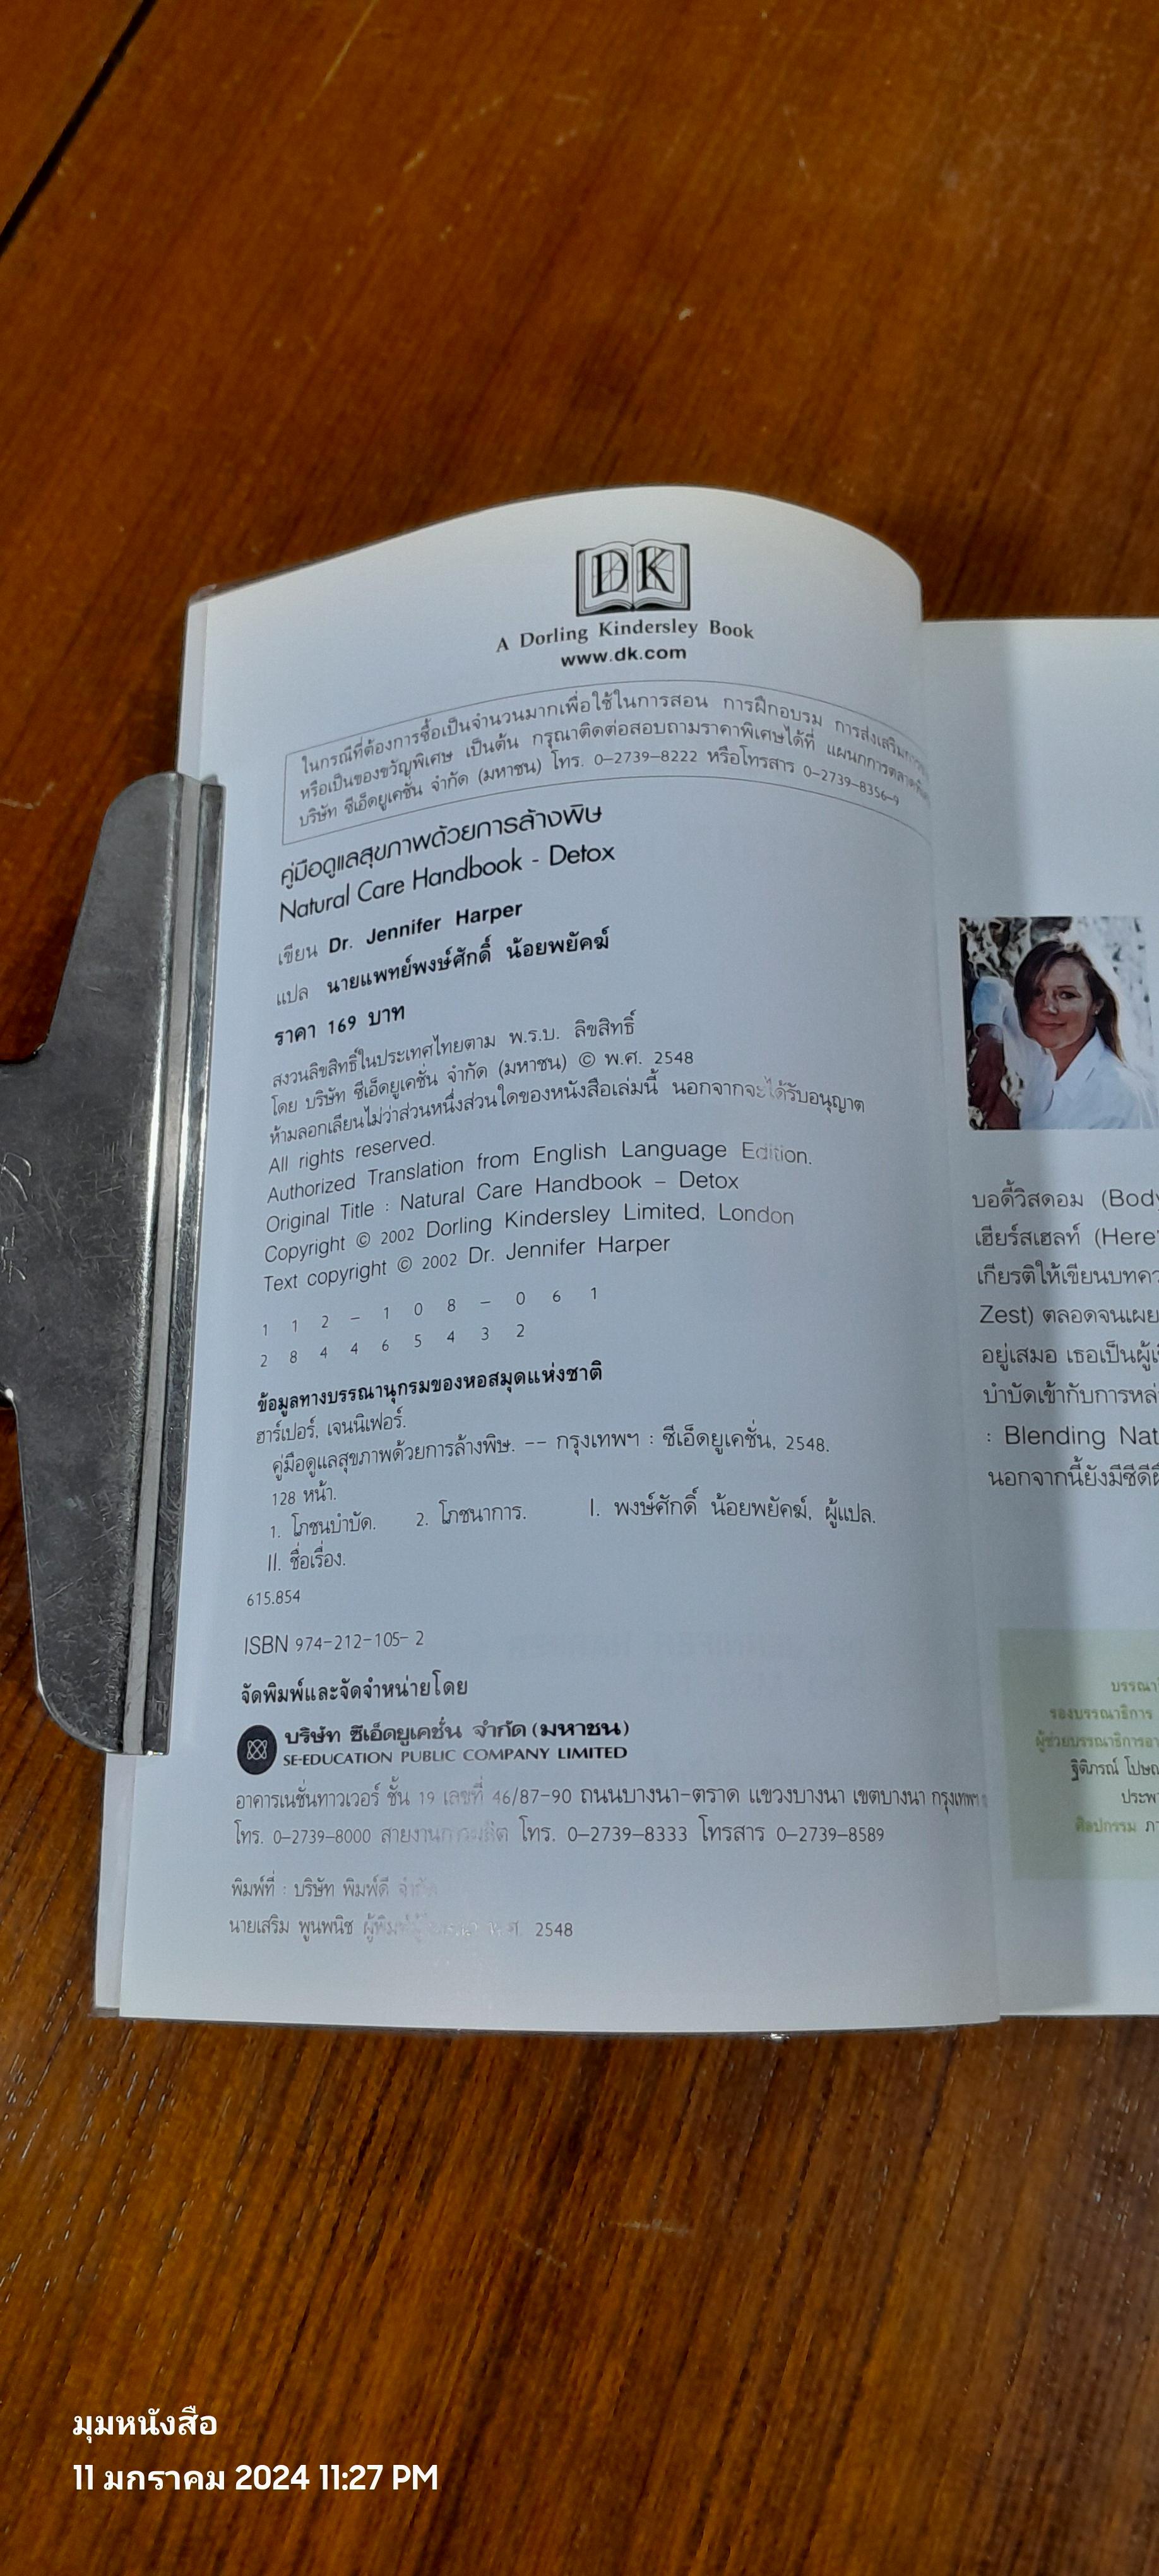 DK
A Dorling Kindersley Book
www.dk.com
ในกรณีที่ต้องการซื้อเป็นจำนวนมากเพื่อใช้ในการสอน การฝึกอบรม การส่งเสริม
หรือเป็นของขวัญพิเศษ เป็นต้น กรุณาติดต่อสอบถามราคาพิเศษได้ที่ แผนกการตลาด
บริษัท ซีเอ็ดยูเคชั่น จำกัด (มหาชน) โทร. 0-2739-8222 หรือโทรสาร 0-2739-8356-9
คู่มือดูแลสุขภาพด้วยการล้างพิษ
Natural Care Handbook - Detox
เขียน Dr. Jennifer Harper
แปล นายแพทย์พงษ์ศักดิ์ น้อยพยัคฆ์
ราคา 169 บาท
สงวนลิขสิทธิ์ในประเทศไทยตาม พ.ร.บ. ลิขสิทธิ์
โดย บริษัท ซีเอ็ดยูเคชั่น จำกัด (มหาชน) © พ.ศ. 2548
ห้ามลอกเลียนไม่ว่าส่วนหนึ่งส่วนใดของหนังสือเล่มนี้ นอกจากจะได้รับอนุญาต
All rights reserved.
Authorized Translation from English Language Edition.
Original Title : Natural Care Handbook – Detox
Copyright © 2002 Dorling Kindersley Limited, London
Text copyright © 2002 Dr. Jennifer Harper
1 1 2 – 1 0 8 – 0 6 1
2 8 4 4 6 5 4 3 2
ข้อมูลทางบรรณานุกรมของหอสมุดแห่งชาติ
ฮาร์เปอร์, เจนนิเฟอร์.
คู่มือดูแลสุขภาพด้วยการล้างพิษ. -- กรุงเทพฯ : ซีเอ็ดยูเคชั่น, 2548.
128 หน้า.
1. โภชนบำบัด. 2. โภชนาการ. I. พงษ์ศักดิ์ น้อยพยัคฆ์, ผู้แปล.
II. ชื่อเรื่อง.
615.854
ISBN 974-212-105- 2
จัดพิมพ์และจัดจำหน่ายโดย
บริษัท ซีเอ็ดยูเคชั่น จำกัด (มหาชน)
SE-EDUCATION PUBLIC COMPANY LIMITED
อาคารเนชั่นทาวเวอร์ ชั้น 19 เลขที่ 46/87-90 ถนนบางนา-ตราด แขวงบางนา เขตบางนา กรุงเทพฯ
โทร. 0-2739-8000 สายงานการผลิต โทร. 0-2739-8333 โทรสาร 0-2739-8589
พิมพ์ที่ : บริษัท พิมพ์ดี จำกัด
นายเสริม พูนพนิช 2548
บอดี้วิสดอม (Body
เฮียร์สเฮลท์ (Here'
เกียรติให้เขียนบทคว
Zest) ตลอดจนเผย
อยู่เสมอ เธอเป็นผู้เ
บำบัดเข้ากับการหล่
: Blending Nat
นอกจากนี้ยังมีซีดี
บรรณา
รองบรรณาธิการ
ผู้ช่วยบรรณาธิการ
ฐิติภรณ์ โปษ
ประพ
ศิลปกรรม
มุมหนังสือ
11 มกราคม 2024 11:27 PM